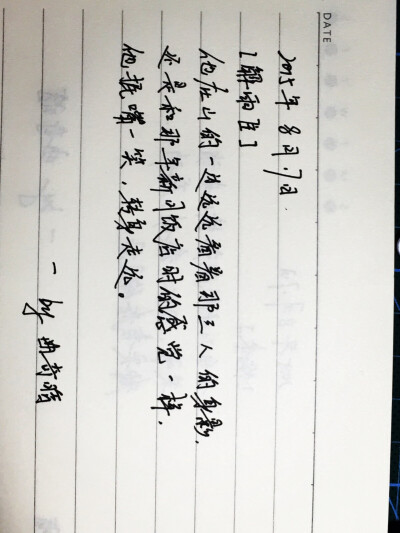 DATE
2015年8月17日.
[解雨臣]
他在山的一边远远看着那三人的身影,
还是和那年新月饭店时的感觉一样,
他抿嘴一笑,转身走远。
— by 曲奇